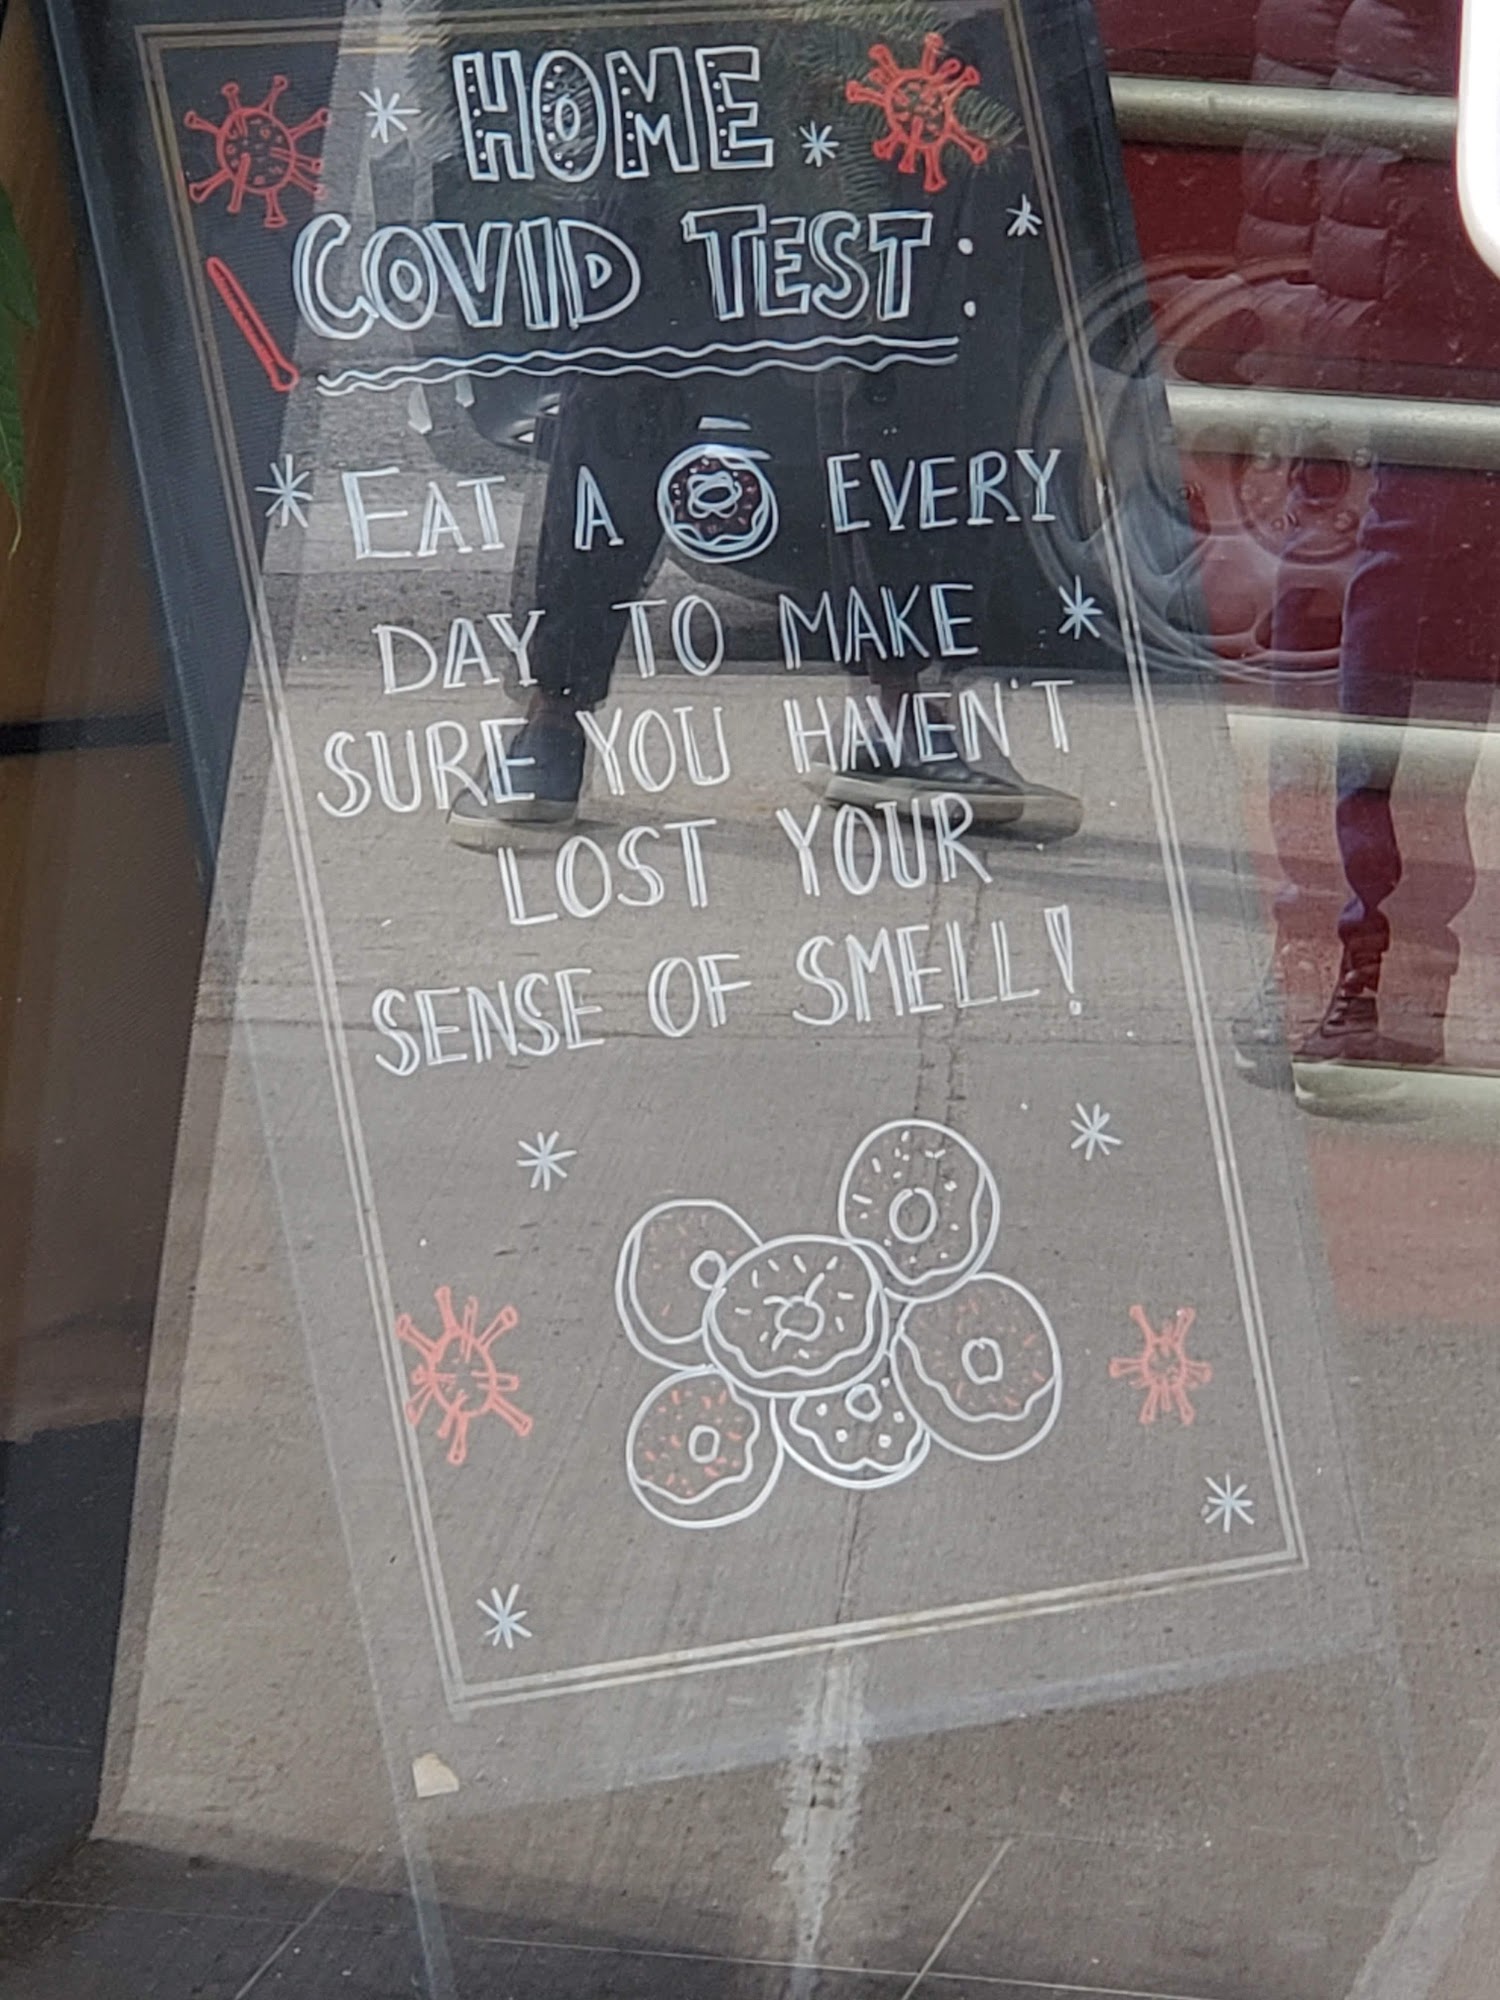 HOME
COVID TEST:
EAT A EVERY
DAY TO MAKE
SURE YOU HAVEN'T
LOST YOUR
SENSE OF SMELL!